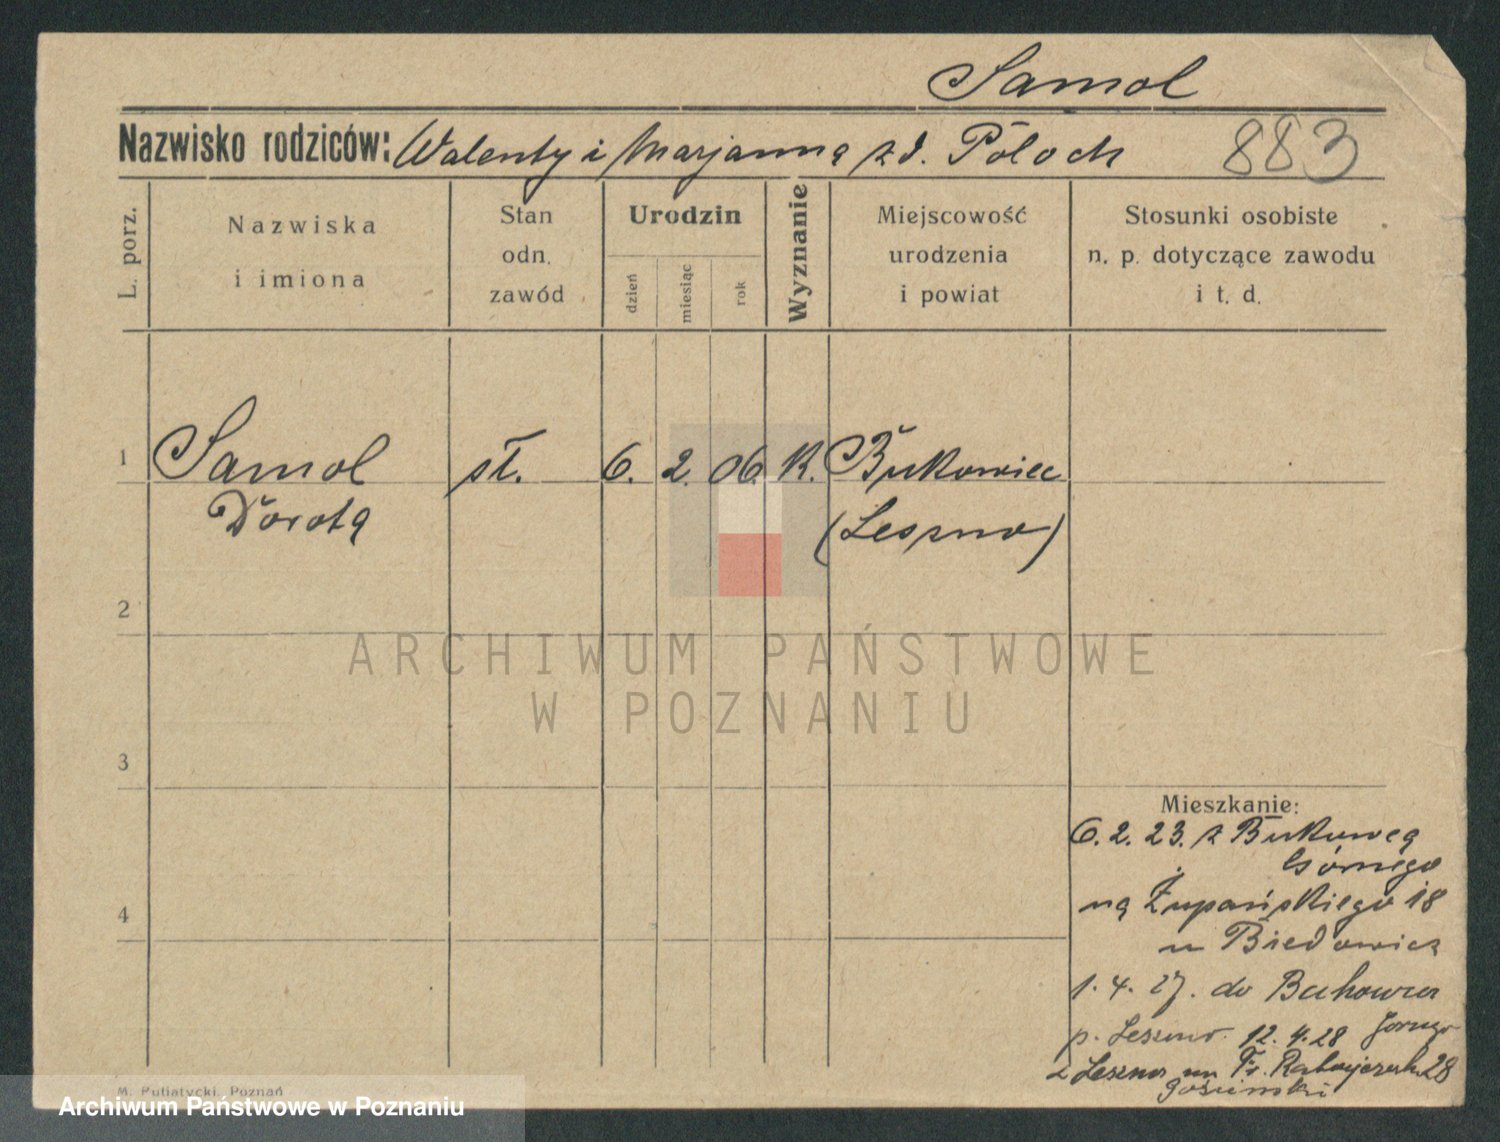 Samol
Nazwisko rodziców: Walenty i Marjanna z d. Póloch 883
L. porz.
Nazwiska
i imiona
Stan
odn.
zawód
Urodzin
dzień
miesiąc
rok
Wyznanie
Miejscowość
urodzenia
i powiat
Stosunki osobiste
n. p. dotyczące zawodu
i t. d.
1 Samol sł. 6. 2. 06. K. Bukowiec
Dorota (Leszno)
2
ARCHIWUM PAŃSTWOWE
W POZNANIU
3
Mieszkanie:
6. 2. 23. z Bukowca
Górnego
4
na Żupańskiego 18
u
1. 4. 27. do
p. Leszno. 12. 4. 28
z Leszna na Fr. Ratajczaka 28
M. Putiatycki, Poznań
Archiwum Państwowe w Poznaniu